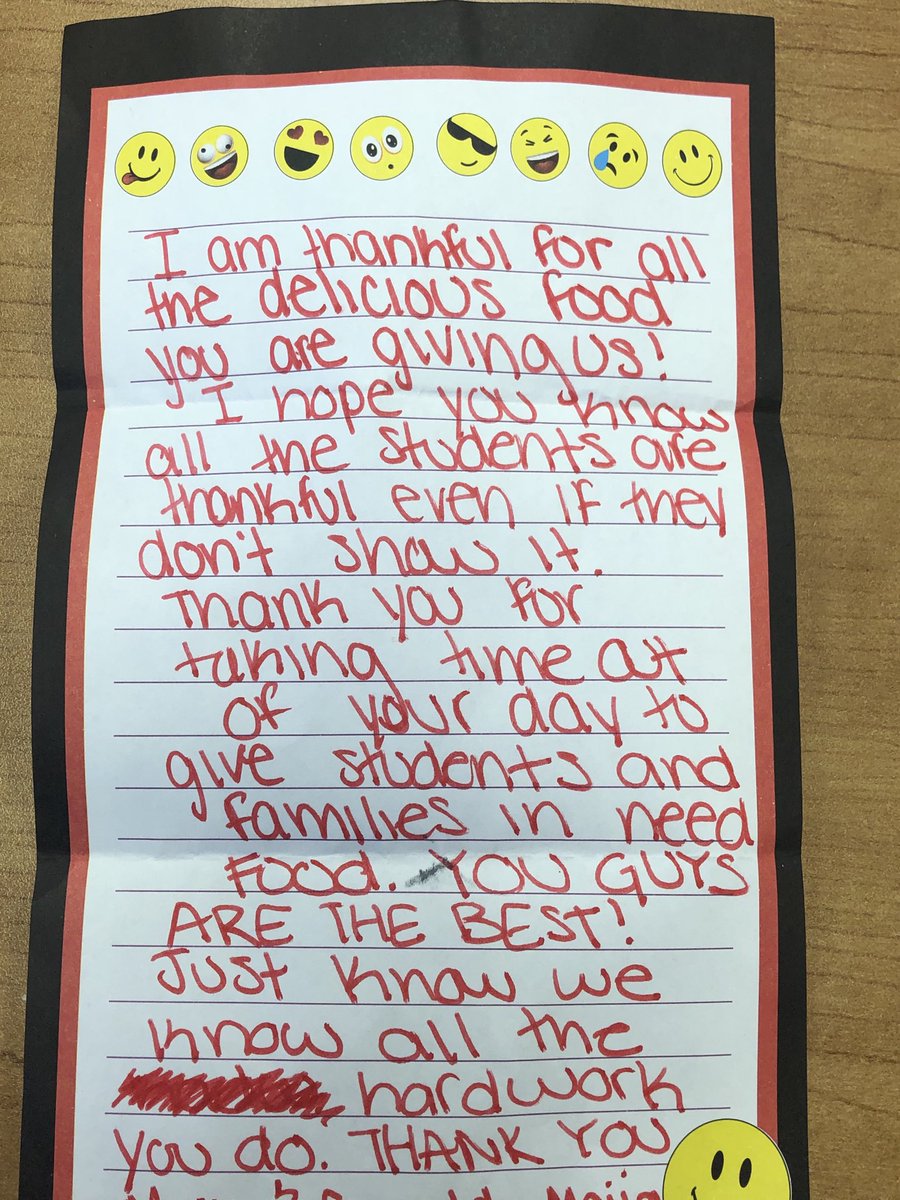 I am thankful for all
the delicious food
you are giving us!
I hope you know
all the students are
thankful even if they
don't show it.
Thank you for
taking time out
of your day to
give students and
families in need
food. YOU GUYS
ARE THE BEST!
Just know we
know all the
hardwork
you do. THANK YOU